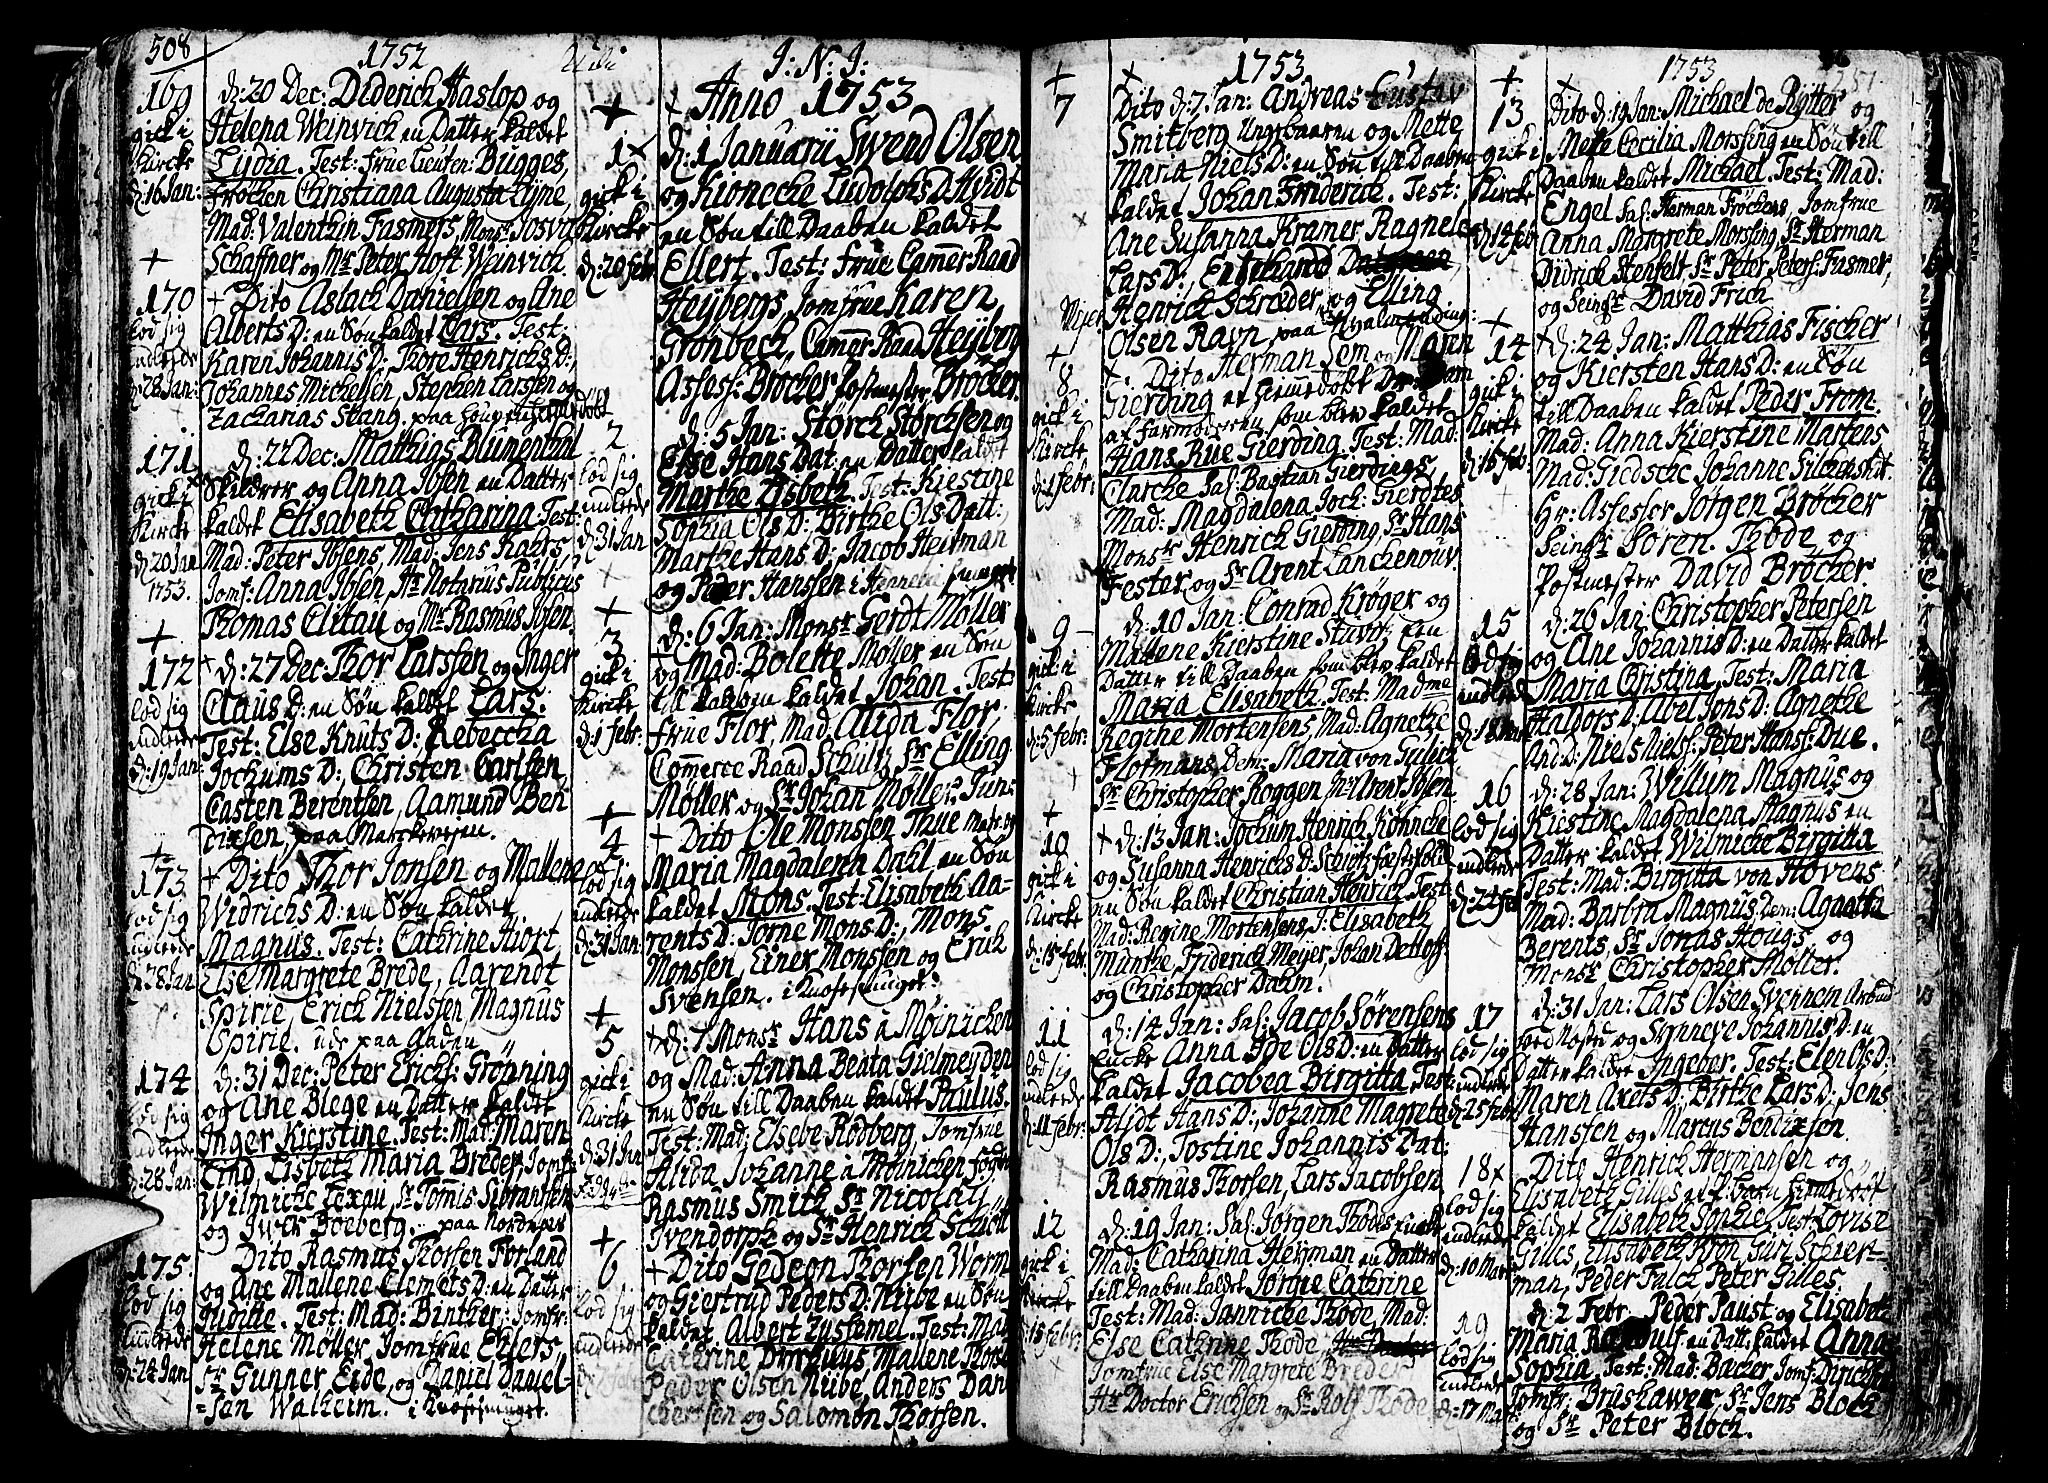 508
1752
169
gick i
Kircke
d: 16 Jan:
d: 20 Dec: Diderich Haslop og
Helena Weinvich en Datter kaldet
Lydia. Test: Frue Lieuten: Bugges,
Frøcken Christiana Augusta Lyme,
Mad. Valentin Fasmers, Monsr Josva
Schaffner og Mr Peter Hoft Weinvich.
170
lod sig
indlede
d: 28 Jan:
+ Dito Aslach Danielsen og Ane
Alberts D: en Søn kaldet Lars. Test:
Karen Johannis D:, Thore Henrichs D:,
Johannes Michelsen, Stephen Larsen og
Zacharias Stang. paa
171
gick i
Kircke
d: 20 Jan
1753.
d: 22 Dec: Matthias Blumenthal
Skildrer og Anna Josen en Datter
kaldet Elisabeth Catharina Test:
Mad: Peter Josens, Mad: Jens Kahrs
Jomf: Anna Josen, Hr Notarius Publicus
Thomas Clitau og Mr Rasmus Josen.
172
lod sig
indlede
d: 19 Jan:
+ d: 27 Dec: Thor Larssen og Inger
Claus D: en Søn kaldet Lars.
Test: Else Knuts D: Rebeccha
Jochums D: Christen Carlsen,
Casten Berentsen, Aamund Ben
dixsen, paa Marckevejen.
173
lod sig
indlede
d: 28 Jan
+ Dito Thor Jonsen og Mallene
Widrichs D: en Søn kaldet
Magnus. Test: Cathrine Hiort,
Else Margrete Brede, Aarendt
Spirie, Erich Nielsen Magnus
Spirie. ude paa Gaden
174
lod sig
indlede
d: 28 Jan:
d: 31 Dec: Peter Erichs: Grønning
og Ane Blege en Datter kaldet
Inger Kierstine. Test: Mad: Maren
Lind, Lisbeth Maria Breder, Jomf:
Wilmicke Lexau, Sr Tomis Sibrandsen
og Iwer Boeberg. paa Nordnæs
175.
lod sig
indlede
d: 24 Jan
Dito Rasmus Thorsen Forland
og Ane Mallene Clemets D: en Datter
Juditte. Test: Mad: Binther, Jomfr:
Helene Møller Jomfrue Ehlers
Sr Gunner Eide, og Daniel Daniel-
sen Walheim. i Knøsesmuget.
J: N: J:
+ Anno 1753
1
gick i
Kircke
d: 20 febr
d: 1 Januarii Swend Olsen
og Kionecke Ludolphs D. Hvidt
en Søn till Daaben kaldet
Ellert. Test: Frue Camer Raad
Heijbergs, Jomfrue Karen
Grønbech, Camer Raad Heijberg
Assess: Brøcher Postmester Brøcher.
2
lod sig
indlede
d: 31 Jan
d: 5 Jan: Størck Storchsen og
Else Hans Dat: en Datter kaldet
Marthe Lisbeth. Test: Kiestine
Sophia Ols D: Birthe Ols Datt:
Marthe Hans D: Jacob Heirman
og Peder Hanssen i
3
gick i
Kircke
d: 1 febr:
d: 6 Jan: Monsr Gerdt Møller
og Mad: Bolette Møller en Søn
till Daaben kaldet Johan. Test:
Frue Flor, Mad: Alida Flor,
Commerce Raad Schult, Sr Elling
Møller og Sr Johan Møller Juns
4
lod sig
indlede
d: 31 Jan:
+ Dito Ole Monsen Thue
Maria Magdalena Dahl en Søn
kaldet Mons. Test: Elisabeth Aa-
rents D: Jorne Mons D:, Mons
Monssen, Einer Monssen og Erick
Svensen. i Knøsesmuget.
5
gick i
Kircke
d: 31 Jan
+ d: 7 Monsr Hans a Møinichen
og Mad: Anna Beata Gielmeyden
en Søn till Daaben kaldet Paulus.
Test: Mad: Elsebe Rodberg, Jomfrue
Alida Johanne a Møinichen
Rasmus Smith Sr Nicolaij
Ivendorph og Sr Henrich Schiött
6
lod sig
indlede
+ Dito Gedeon Thorsen Worm
og Giertrud Peders D: Nübe en Søn
kaldet Albert Zystemel. Test: Mad
Cathrine Mallene Thors
Peder Olsen Nübe, Anders Dan
chertsen og Salomon Thorsen.
1753
7
Dito d: 7 Jan: Andreas Gustav
Smitberg og Mette
Maria Niels D: en Søn till Daaben
kaldet Johan Friderich. Test:
Ane Susanna Kramer Ragnele
Lars D:,
Henrich Schrøder, og Elling
Olsen Ravn paa
8
gick i
Kircke
d: 1 febr:
+ Dito Herman Sem og Maren
Gierding et hiemmedøbt
som blev kaldet
Hans Rue Gierding. Test: Mad:
Clarcke Sal: Bastian Gierdings,
Mad: Magdalena Joch: Gierdtes
Monsr Henrich Gierding, Sr Hans
Fester og Sr Arent Lanchenouv
9
gick i
Kircke
d: 5 febr:
d: 10 Jan: Conrad Krøger og
Mallene Kierstine en
Datter till Daaben som blev kaldet
Maria Elisabeth. Test: Madme
Regine Mortensens, Mad: Agnethe
Hofmans, Dem: Maria von Gulich
Sr Christopher Roggen Mr Arent Josen
10
gick i
Kircke
d: 15 febr.
+ d: 13 Jan: Jochum Henrich Kønncke
og Susanna Henrichs D:
en Søn kaldet Christian Henrich. Test:
Mad: Regine Mortensens, J: Elisabeth
Münthe, Friderich Meyer, Johan Dethoff
og Christopher Dahm.
11
lod sig
indlede
d: 11 febr:
d: 14 Jan: Sal: Jacob Sørensens
Encke Anna Ide Ols D: en Datter
kaldet Jacobea Birgitta. Test:
Alidt Hans D:, Johanne Magrete
Ols D:, Jostine Johannis Dat:
Rasmus Thorsen, Lars Jacobsen
12
gick i
Kircke
d: 19 Jan: Sal: Jørgen Thodes
Mad: Catharina Heyman en Datter
till Daaben kaldet Jørgine Cathrine
Test: Mad: Jannicke Thode, Mad:
Else Cathrine Thode,
Jomfrue Else Margrete Breder
Hr Doctor Erichsen og Sr Rolf Thode
1753
13
gick i
Kircke
d: 12 feb
Dito d: 19 Jan: Michael de Rÿtter og
Mette Cecilia Morssing en Søn till
Daaben kaldet Michael. Test: Mad:
Engel Sal: Herman Frøchens, Jomfrue
Anna Margrete Morssing, Sr Herman
Didrich Henfelt Sr Peter Peters: Fasmer,
og Seingr David Frich
14
gick i
Kircke
d: 16 feb
+ d: 24 Jan: Matthias Fischer
og Kiersten Hans D: en Søn
till Daaben kaldet Peder From.
Mad: Anna Kierstine Martens
Mad: Giedsche Johanne
Hr: Assessor Jørgen Brøcher
Seingr Søren Thode og
Postmester David Brøcher.
15
lod sig
indlede
d: 26 Jan: Christopher Petersen
og Ane Johannis D: en Datter kaldet
Maria Christina, Test: Maria
Haldors D: Abel Jons D: Agnethe
And: D: Niels Niels: Peter Hans: Due.
16
lod sig
indlede
d: 28 Jan: Willum Magnus og
Kiestine Magdalena Magnus en
Datter kaldet Wilmicke Birgitta
Test: Mad: Birgitta von Hovens
Mad: Barbra Magnus Dem: Agaatha
Berents, Sr Jonas Hougs og
Monsr Christopher Møller.
17
lod sig
indlede
d: 25 feb
d: 31 Jan: Lars Olsen Svennem
og Synneve Johannis D: en
Datter kaldet Ingebor. Test: Elen Ols D:
Maren Axels D: Birthe Lars D: Jens
Hanssen og Marcus Bendixsen.
18
lod sig
indlede
d: 10 Marti
Dito Henrich Hermansen og
Elisabeth Gilles et P: barn hiemdøbt
kaldet Elisabeth Sophie. Test: Lovise
Gilles, Elisabeth Kron, Guri Schier-
man, Peder Falch Peter Gilles.
19
lod sig
indlede
d: 17 Ma
d: 2 Febr. Peder Paust og Elisabeth
Maria en Datt: kaldet Anna
Sophia, Test: Mad: Balzer, Jomf: Dirichs
Jomfr: Bruskawer, Sr Jens Bloch
og Sr Peter Bloch.